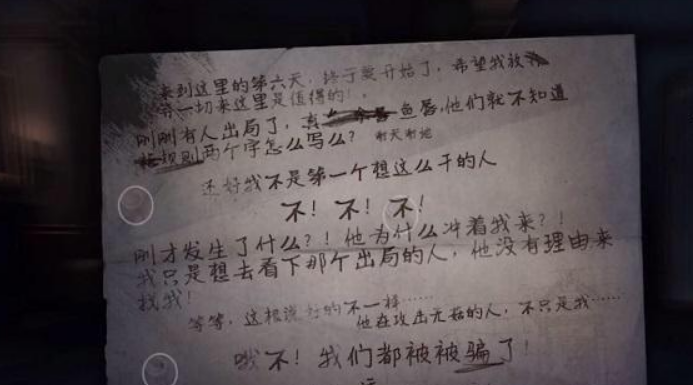 来到这里的第六天，终于要开始了，希望我放弃
一切来这里是值得的！
刚刚有人出局了，真 鱼唇，他们就不知道
规则两个字怎么写么？ 谢天谢地
还好我不是第一个想这么干的人
不！不！不！
刚才发生了什么？！他为什么冲着我来？！
我只是想去看下那个出局的人，他没有理由来
找我！
等等，这根说好的不一样……
他在攻击无辜的人，不只是我……
哦不！我们都被被骗了！